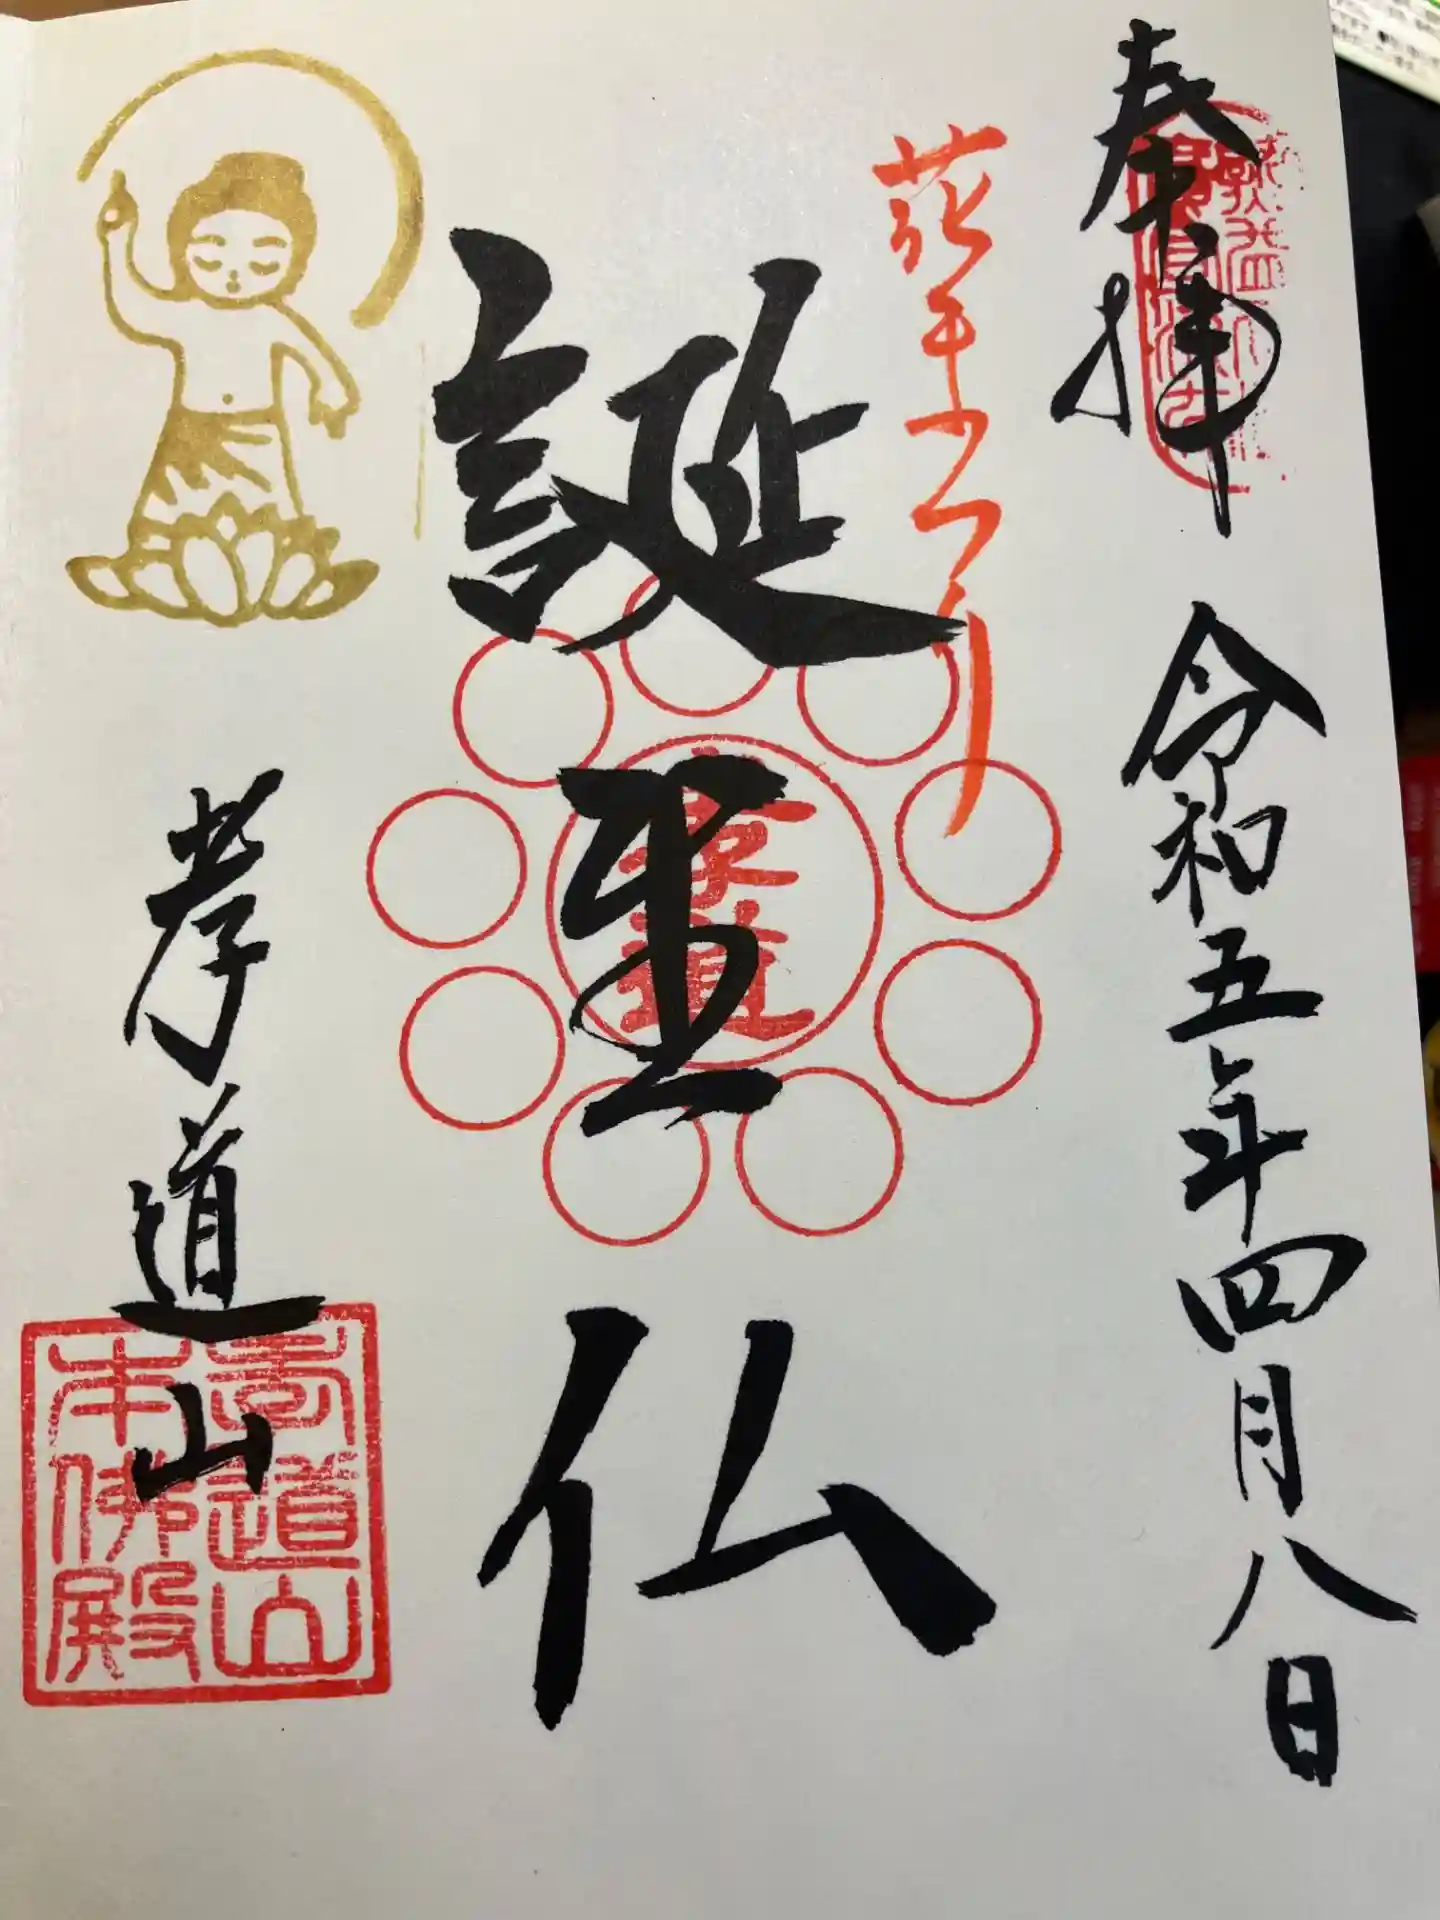 奉拝
令和五年四月八日
花まつり
誕生仏
孝道
孝道山
孝道山
本佛殿